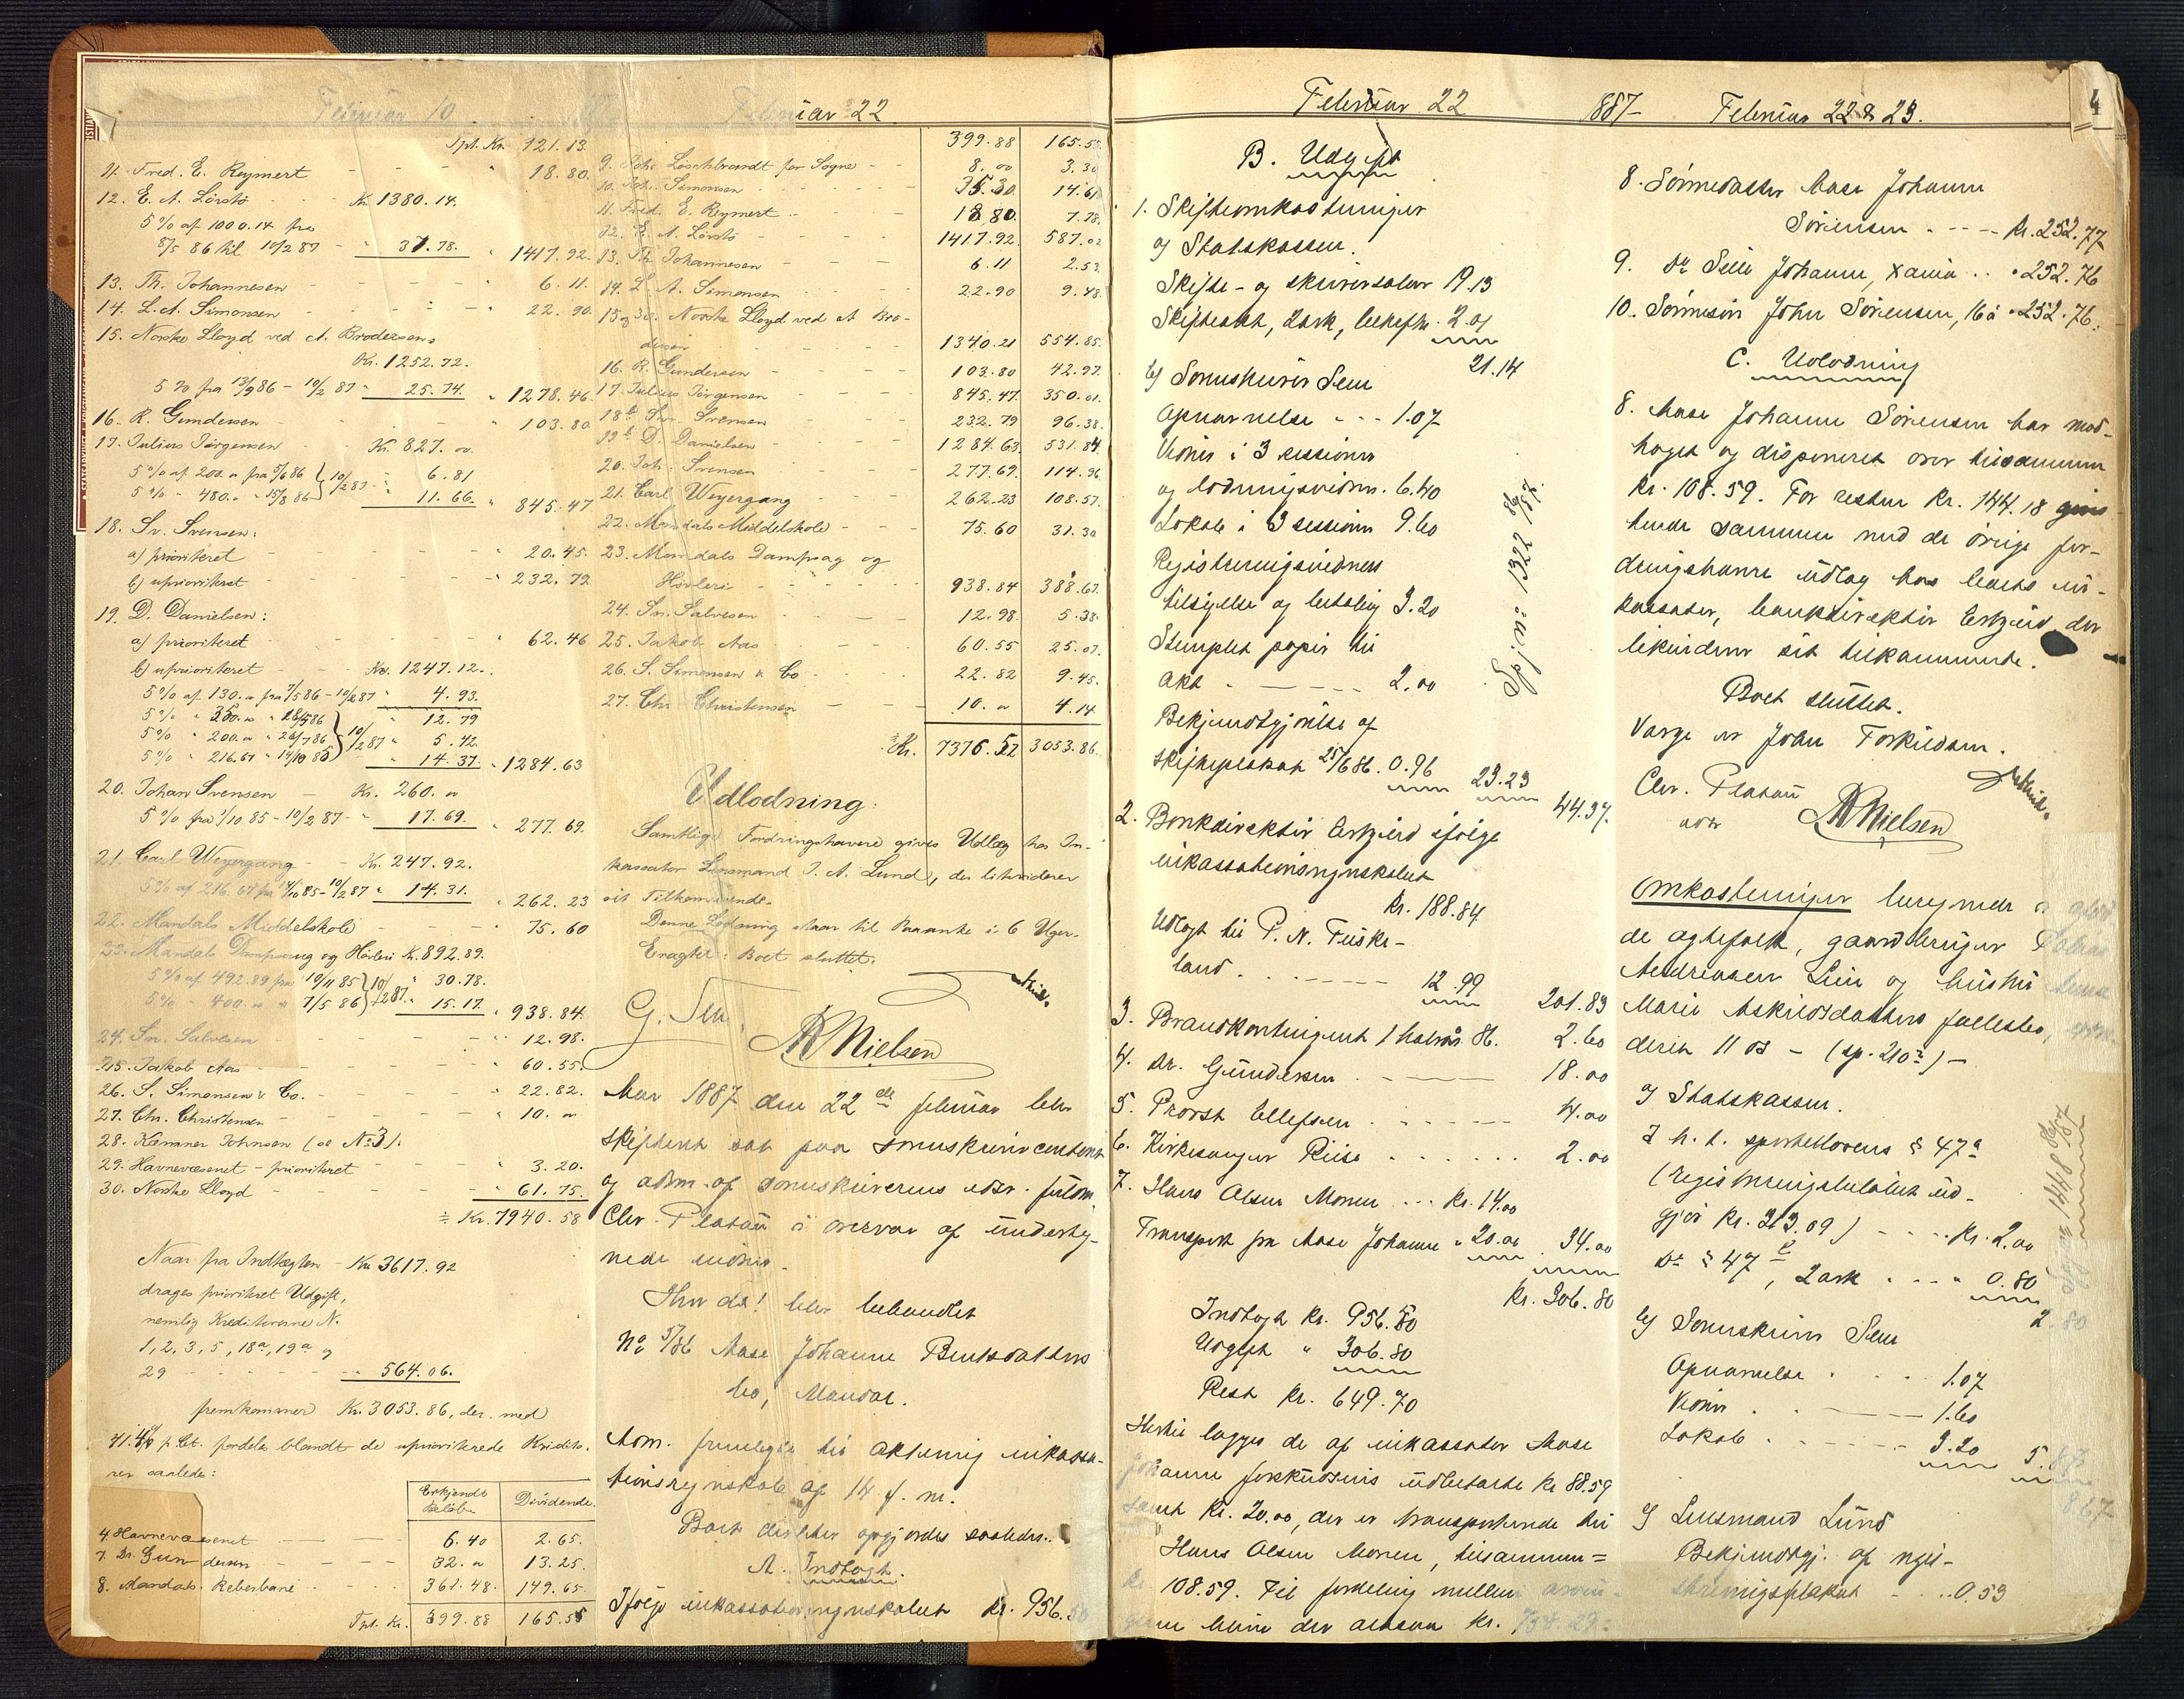 Februar 10
Tpt. Kr. 921.13
11. Fred. E. Reymert - - " 18.80.
12. E. A. Lörstö - - Kr. 1380.14.
5 % af 1000.14 fra
8/5 86 til 10/2 87 - " 37.78. " 1417.92.
13. Th. Johannesen - - " 6.11.
14. L. A. Simonsen - - " 22.90.
15. Norske Lloyd ved A. Brodersen:
Kr. 1252.72.
5 % fra 13/9 86 - 10/2 87 " 25.74. " 1278.46.
16. R. Gundersen - - " 103.80
17. Julius Jörgensen Kr. 827.00
5 % af 200.00 fra 5/6 86 } 10/2 87 " 6.81
5 % - 480.00 " 15/8 86 } 11.66. " 845.47
18. Sv. Svensen:
a) prioriteret - - " 20.45.
b) uprioriteret - - " 232.79
19. D. Danielsen:
a) prioriteret - - " 62.46
b) uprioriteret - - Kr. 1247.12.
5 % af 130.00 fra 7/5 86 - 10/2 87 " 4.93.
5 % " 350.00 " 28/5 86 } " 12.79
5 % " 200.00 " 26/7 86 } 10/2 87 " 5.42.
5 % " 216.67 " 14/10 85 } " 14.37. " 1284.63
20. Johan Svensen - Kr. 260.00
5 % fra 1/10 85 - 10/2 87 - " 17.69. " 277.69.
21. Carl Weyergang - - Kr. 247.92.
5 % af 216.67 fra 14/10 85 - 10/2 87 " 14.31. " 262.23
22. Mandals Middelskole - - 75.60
23. Mandals Dampsag og Hövleri Kr. 892.89.
5 % af 492.89 fra 10/11 85 } 10/2 87 " 30.78.
5 % - 400.00 " 7/5 86 } " 15.17. " 938.84.
24. Sn. Salvesen - - " 12.98.
25. Jakob Aas - - " 60.55.
26. S. Simonsen & Co. - - " 22.82.
27. Chr. Christensen - - " 10.00
28. Kæmner Johnsen (se No 3).
29. Havnevæsenet - prioriteret - - " 3.20.
30. Norske Lloyd - - " 61.75.
÷ Kr. 7940.58
Naar fra Indtægten - Kr. 3617.92
drages prioriteret Udgift,
nemlig Kreditorerne N.
1, 2, 3, 5, 18a, 19a og
29 - - " 564.06.
fremkommer Kr. 3053.86, der med
41.40 p Ct. fordeles blandt de uprioriterede Kredito-
rer saaledes:
Erkjendt Beløb. Dividende.
4. Havnevæsenet - 6.40 2.65.
7. Dr. Gundersen - - 32.00 13.25.
8. Mandals Reberbane - - 361.48. 149.65.
Tpt. Kr. 399.88 165.55
Februar 22
399.88 165.55
9. Joh. Löschbrandt for Søgne - - 8.00 3.30
10. Joh. Simonsen - - 35.30 14.61
11. Fred. E. Reymert - - 18.80. 7.78.
12. E. A. Lörstö - - 1417.92. 587.02
13. Th. Johannesen - - 6.11 2.53.
14. L. A. Simonsen - - 22.90 9.48.
15 og 30. Norske Lloyd ved A Bro-
dersen - - 1340.21 554.85.
16. R. Gundersen - - 103.80 42.97.
17. Julius Jörgensen - - 845.47. 350.01.
18b Sv. Svensen - - 232.79 96.38.
19b D. Danielsen - - 1284.63. 531.84.
20. Joh. Svensen - - 277.69. 114.96
21. Carl Weyergang - - 262.23 108.57.
22. Mandals Middelskole - - 75.60 31.30
23. Mandals Dampsag og
Hövleri - - 938.84 388.67.
24. Sn. Salvesen - - 12.98. 5.38.
25. Jakob Aas - - 60.55 25.07.
26. S. Simonsen & Co - - 22.82 9.45.
27. Chr. Christensen - - 10.00 4.14
÷ Kr. 7376.52 3053.86.
Udlodning:
Samtlige Fordringshavere gives Udlæg hos In-
kassator Lensmand J. A. Lund, der likviderer
sit Tilkommende.
Denne Lodning staar til Paaanke i 6 Uger.
Eragtet: Boet sluttet.
G. Sem
A Nielsen
Aar 1887 den 22de februar blev
skifteret sat paa sorenskrivercontoret
og adm. af sorenskriverens edsv. fuldm.
Chr. Platou i overvær af underteg-
nede vidner.
Hvor da! blev behandlet
No 5/86 Aase Johanne Berntsdatters
bo, Mandal.
Adm. fremlegte til aktering inkassa-
tionsregnskab af 14 f. m.
Boet derefter opgjordes saaledes:
A. Indtægt.
Ifølge inkassationsregnskabet kr. 956.50
Februar 22
B. Udgift
1. Skifteomkostninger
a) Statskassen.
Skifte- og skriversalær 19.13
Skifteakt, 2 ark, beheftn. 2.01
21.14
b) Sorenskriver Sem
Opnævnelse - - - 1.07
Vidner i 3 sessioner
og lodningsvidner. 6.40
Lokale i 3 sessioner 9.60
Registreringsvidners
tilsigelse og betaling 3.20
Stemplet papir til
akt - - - - 2.00
Bekjendtgjørelse af
skifteplakat 25/6 86. 0.96 23.23
44.37.
2. Bankdirektør Eskjerd ifølge
inkassationsregnskabet
kr. 188.84
Udlagt til P. N. Fuske-
land. - - - - 12.99
201.83
3. Brandkontingent 1 halvår 86. 2.60
4. Dr. Gundersen - - 18.00
5. Provst Ellefsen - - 4.00
6. Kirkesanger Riise - - 2.00
7. Hans Olsen Monen - - - kr. 14.00
Transport fra Aase Johanne " 20.00 34.00
kr. 306.80
Indtægt kr. 956.50
Udgift " 306.80
Rest kr. 649.70
Hertil lægges de af inkassator Aase
Johanne forskudsvis udbetalte kr 88.59
samt kr. 20.00, der er transporterede til
Hans Olsen Monen, tilsammen =
kr. 108.59. Til fordeling mellem arvin-
gerne bliver der altsaa kr. 758.29:
1887- Februar 22 & 23.
4
8. Sønnedatter Aase Johanne
Sørensen - - - - kr. 252.77
9. Do Seva Johanne, Xania - - " 252.76
10. Sønnesøn John Sørensen, 16 å " 252.76.
C. Udlodning
8. Aase Johanne Sørensen har mod-
taget og disponeret over tilsammen
kr. 108.59. For resten kr. 144.18 gives
hende sammen med de øvrige for-
dringshavere udlæg hos boets in-
kassator, bankdirektør Eskjerd der
likviderer sit tilkommende.
Boet sluttet.
Værge er John Torkildsen.
Chr. Platou
edsv
A Nielsen
Omkostninger beregnede i afdø-
de ægtefolk, gaardbruger Tobias
Andreassen Lien og hustru
Marie Askildsdatters fællesbo,
derit 11 03 - (sp. 210 2) -
a) Statskassen.
I h. t. sportellovens § 47a
(registreringsbeløbet ud-
gjør kr. 313.09) - - kr. 2.00
Do § 47 c, 2 ark - - - " 0.80
2.80
b) Sorenskriver Sem
Opnævnelse - - - 1.07
Vidner - - 1.60
Lokale - - 3.20 5.87
8.67
c) Lensmand Lund
Bekjendtgj. af regi-
streringsplakat - - 0.53